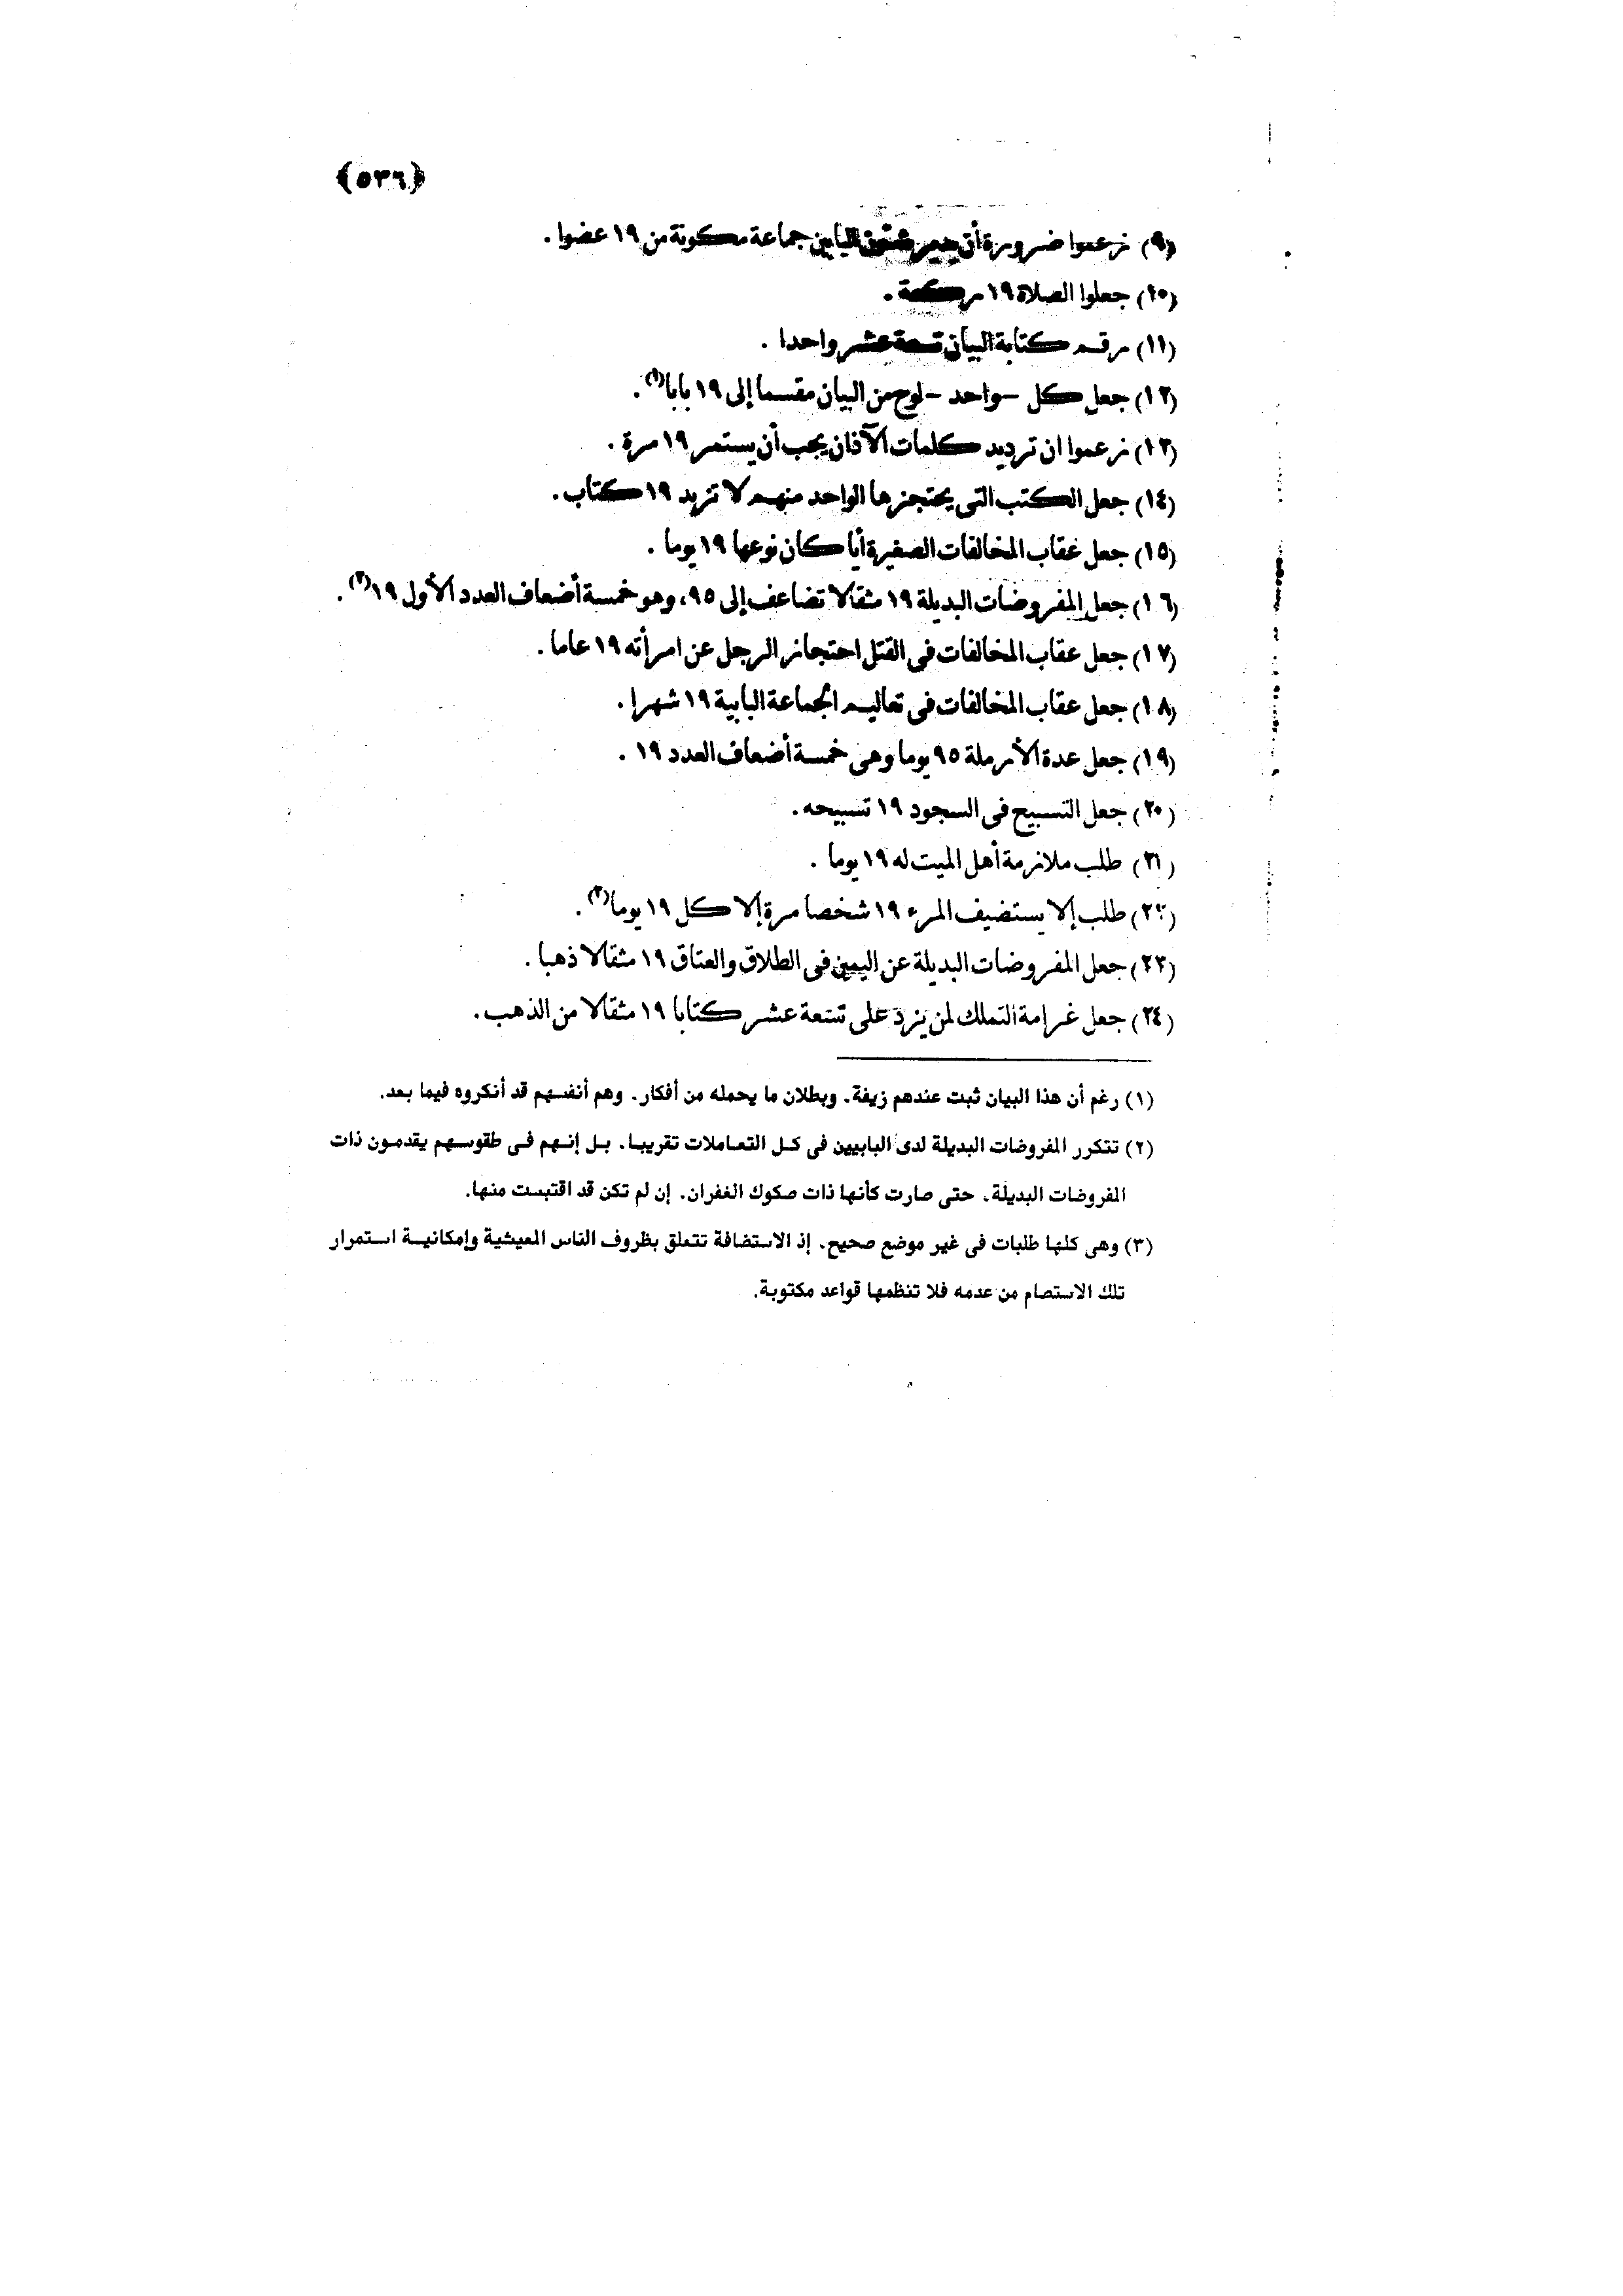 ﴿٥٣٦﴾
(٩) زعموا ضرورة أن يدير شئون البابيين جماعة مكونة من ١٩ عضوا.
(١٠) جعلوا الصلاة ١٩ ركعة.
(١١) رقم كتابة البيان تسعة عشر واحدا.
(١٢) جعل كل -واحد- لوح من البيان مقسما إلى ١٩ بابا(١).
(١٣) زعموا ان ترديد كلمات الآذان يجب أن يستمر ١٩ مرة.
(١٤) جعل الكتب التى يحتجزها الواحد منهم لا تزيد ١٩ كتاب.
(١٥) جعل عقاب المخالفات الصغيرة أيا كان نوعها ١٩ يوما.
(١٦) جعل المفروضات البديلة ١٩ مثقالا تضاعف إلى ٩٥، وهو خمسة أضعاف العدد الأول ١٩(٢).
(١٧) جعل عقاب المخالفات فى القتل احتجاز الرجل عن امرأته ١٩ عاما.
(١٨) جعل عقاب المخالفات فى تعاليم الجماعة البابية ١٩ شهرا.
(١٩) جعل عدة الأرملة ٩٥ يوما وهى خمسة أضعاف العدد ١٩.
(٢٠) جعل التسبيح فى السجود ١٩ تسبيحه.
(٢١) طلب ملازمة أهل الميت له ١٩ يوما.
(٢٢) طلب إلا يستضيف المرء ١٩ شخصا مرة إلا كل ١٩ يوما(٣).
(٢٣) جعل المفروضات البديلة عن اليمين فى الطلاق والعتاق ١٩ مثقالا ذهبا.
(٢٤) جعل غرامة التملك لمن يزد على تسعة عشر كتابا ١٩ مثقالا من الذهب.
(١) رغم أن هذا البيان ثبت عندهم زيفة. وبطلان ما يحمله من أفكار. وهم أنفسهم قد أنكروه فيما بعد.
(٢) تتكرر المفروضات البديلة لدى البابيين فى كل التعاملات تقريبا. بل إنهم فى طقوسهم يقدمون ذات
المفروضات البديلة. حتى صارت كأنها ذات صكوك الغفران. إن لم تكن قد اقتبست منها.
(٣) وهى كلها طلبات فى غير موضع صحيح. إذ الاستضافة تتعلق بظروف الناس المعيشية وإمكانية استمرار
تلك الاستصام من عدمه فلا تنظمها قواعد مكتوبة.